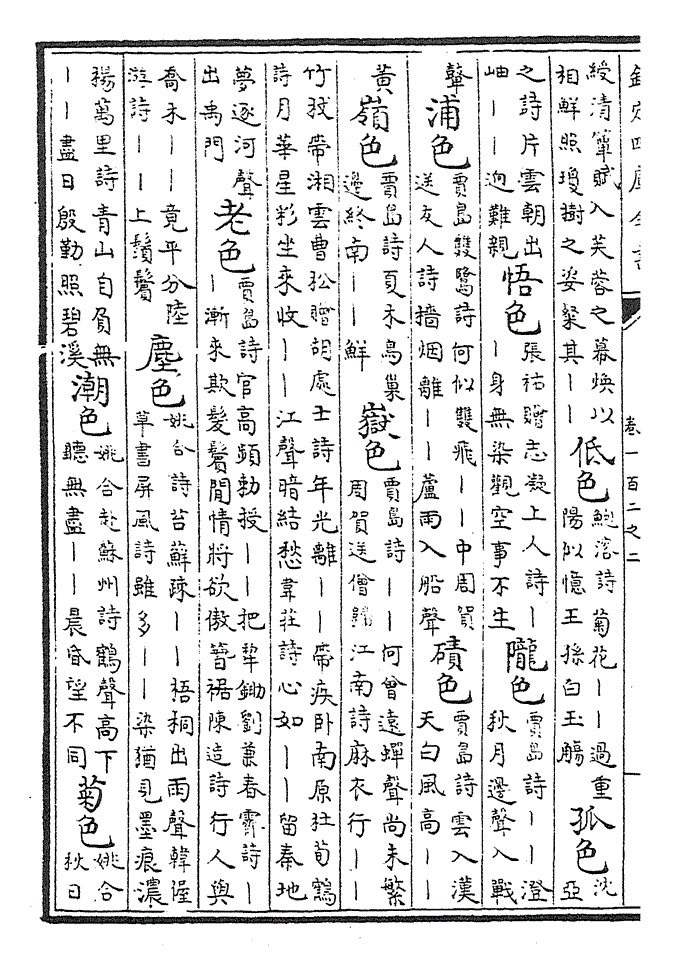 欽定四庫全書 卷一百二之二
綬清篳賦入芙蓉之幕煥以
相鮮照瓊樹之姿粲其丨丨
低色
鮑溶詩菊花丨丨過重
陽似憶王孫白玉觴
孤色
沈
亞
之詩片雲朝出
岫丨丨迥難親
悟色
張祜贈志凝上人詩丨
丨身無染觀空事不生
隴色
賈島詩丨丨澄
秋月邊聲入戰
鼙
浦色
賈島雙鷺詩何似雙飛丨丨中周賀
送友人詩檣烟離丨丨蘆雨入船聲
磧色
賈島詩雲入漢
天白風高丨丨
黃
嶺色
賈島詩頁禾鳥巢
邊終南丨丨鮮
嶽色
賈島詩丨丨何曾遠蟬聲尚未繁
周賀送僧歸江南詩麻衣行丨丨
竹杖帶湘雲曹松贈胡處士詩年光離丨丨帝疾卧南原杜荀鶴
詩月華星彩坐來收丨丨江聲暗結愁韋莊詩心如丨丨留秦地
夢逐河聲
出禹門
老色
賈島詩官高頻勅授丨丨把犂鋤劉兼春霽詩丨
丨漸來欺髮鬢閒情將欲傲簪裾陳造詩行人與
喬木丨丨竟平分陸
游詩丨丨上鬚鬢
塵色
姚合詩苔蘚疎丨丨梧桐出雨聲韓偓
草書屏風詩雖多丨丨染猶見墨痕濃
楊萬里詩青山自負無
丨丨盡日殷勤照碧溪
潮色
姚合赴蘇州詩鶴聲高下
聽無盡丨丨晨昏望不同
菊色
姚合
秋日